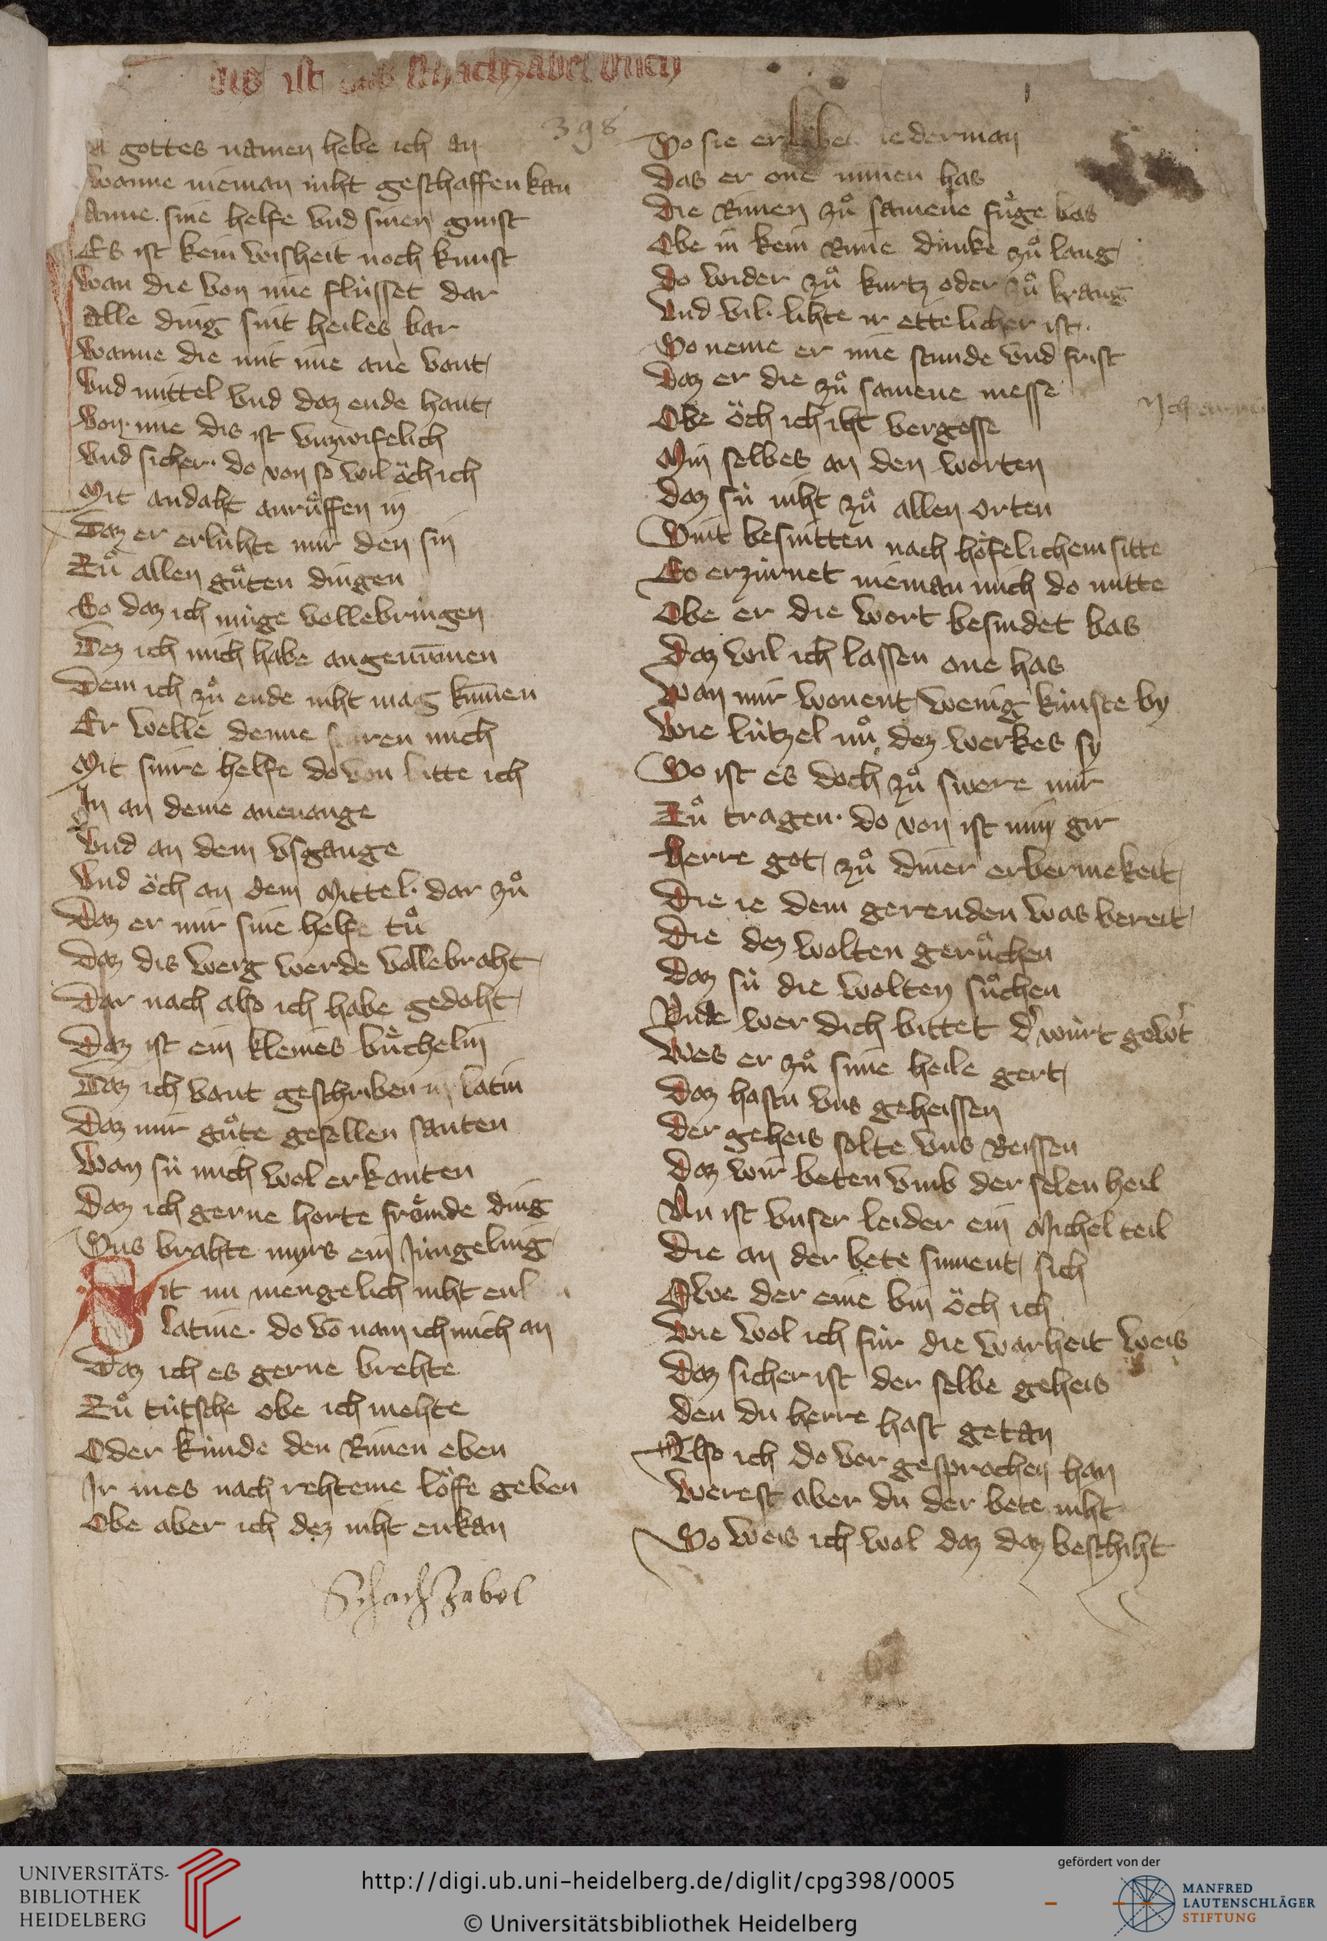 Dis ist das schachzabel buch
398
1
In gottes namen hebe ich an
Wanne nieman niht geschaffen kan
Anne sine helfe vnd sinen gunst
Es ist kein wisheit noch kunst
Wan die von ime flússet dar
Alle ding sint heiles bar
Wanne die mit ime ane vant
Vnd mittel vnd daz ende hant
Von ime dis ist vnzwifelich
Vnd sicher. do von so wil öch ich
Mit andaht anruͦffen in
Daz er erlúhte mir den sin
Zuͦ allen guͦten dingen
So daz ich múge vollebringen
Dez ich mich habe angenum̄en
Dem ich zuͦ ende niht mag kum̄en
Er welle denne mich
Mit sinre helfe do von bitte ich
In an deme anevange
Vnd an dem vsgange
Vnd öch an dem mittel. dar zuͦ
Daz er mir sine helfe tuͦ
Daz dis werg werde vollebraht
Dar nach also ich habe gedoht
Daz ist ein kleines buͤchelin
Daz ich vant geschriben in latin
Daz mir guͦte gesellen santen
Wan sú mich wol erkanten
Daz ich gerne horte froͤmde ding
Sus brahte mirs ein Júngeling
Sit nu mengelich niht
latine. do vō nam ich mich an
Daz ich es gerne brehte
Zuͦ tútsche obe ich mehte
Oder kúnde den Rimen eben
Ir mes nach rehteme löffe geben
Obe aber ich dez niht enkan
Schachzabel
So sie erlöbet iederman
Das er one minen has
Die Rimen zuͦ samene fuͤge bas
Obe in kein Rime dunke zuͦ lang
Do wider zuͦ kurtz oder zuͦ krang
Vnd vil. lihte ir ettelicher ist.
So neme er ime stunde vnd frist
Daz er die zuͦ samene messe
Obe öch ich iht vergesse
Min selbes an den worten
Daz sú niht zuͦ allen orten
Sint besnitten nach höfelichem sitte
So erzúrnet nieman mich do mitte
Obe er die wort besnidet bas
Daz wil ich lassen one has
Wan mir wonent wenig kúnste by
Wie lútzel nuͦ dez werkes sy
So ist es doch zuͦ swere mir
Zuͦ tragen. do von ist min gir
Herre got zuͦ diner erbermekeit
Die ie dem gerenden was bereit
Die dez wolten geruͦchen
Daz sú die wolten suͦchen
Vnde wer dich bittet d' wúrt gew't
Wes er zuͦ sime heile gert
Daz hastu vns geheissen
Der geheis solte vns Reissen
Daz wir beten vmb der selen heil
Nu ist vnser leider ein michel teil
Die an der bete sument sich
Owe der eine bin öch ich
Wie wol ich fúr die warheit weis
Daz sicher ist der selbe geheis
Den du herre hast getan
Also ich do vor gesprochen han
Werest aber du der bete niht
So weis ich wol daz daz beschiht
UNIVERSITÄTS-
BIBLIOTHEK
HEIDELBERG
http://digi.ub.uni-heidelberg.de/diglit/cpg398/0005
© Universitätsbibliothek Heidelberg
gefördert von der
MANFRED
LAUTENSCHLÄGER
STIFTUNG